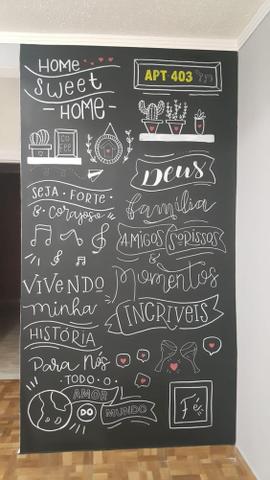 HOME
Sweet
- HOME -
SEJA · FORTE
& Corajoso
VIVENDO
minha
HISTÓRIA
Para Nós
· TODO · O ·
AMOR
DO
MUNDO
APT 403
Deus
família
AMIGOS SORISSOS
& Momentos
INCRÍVEIS
Fé